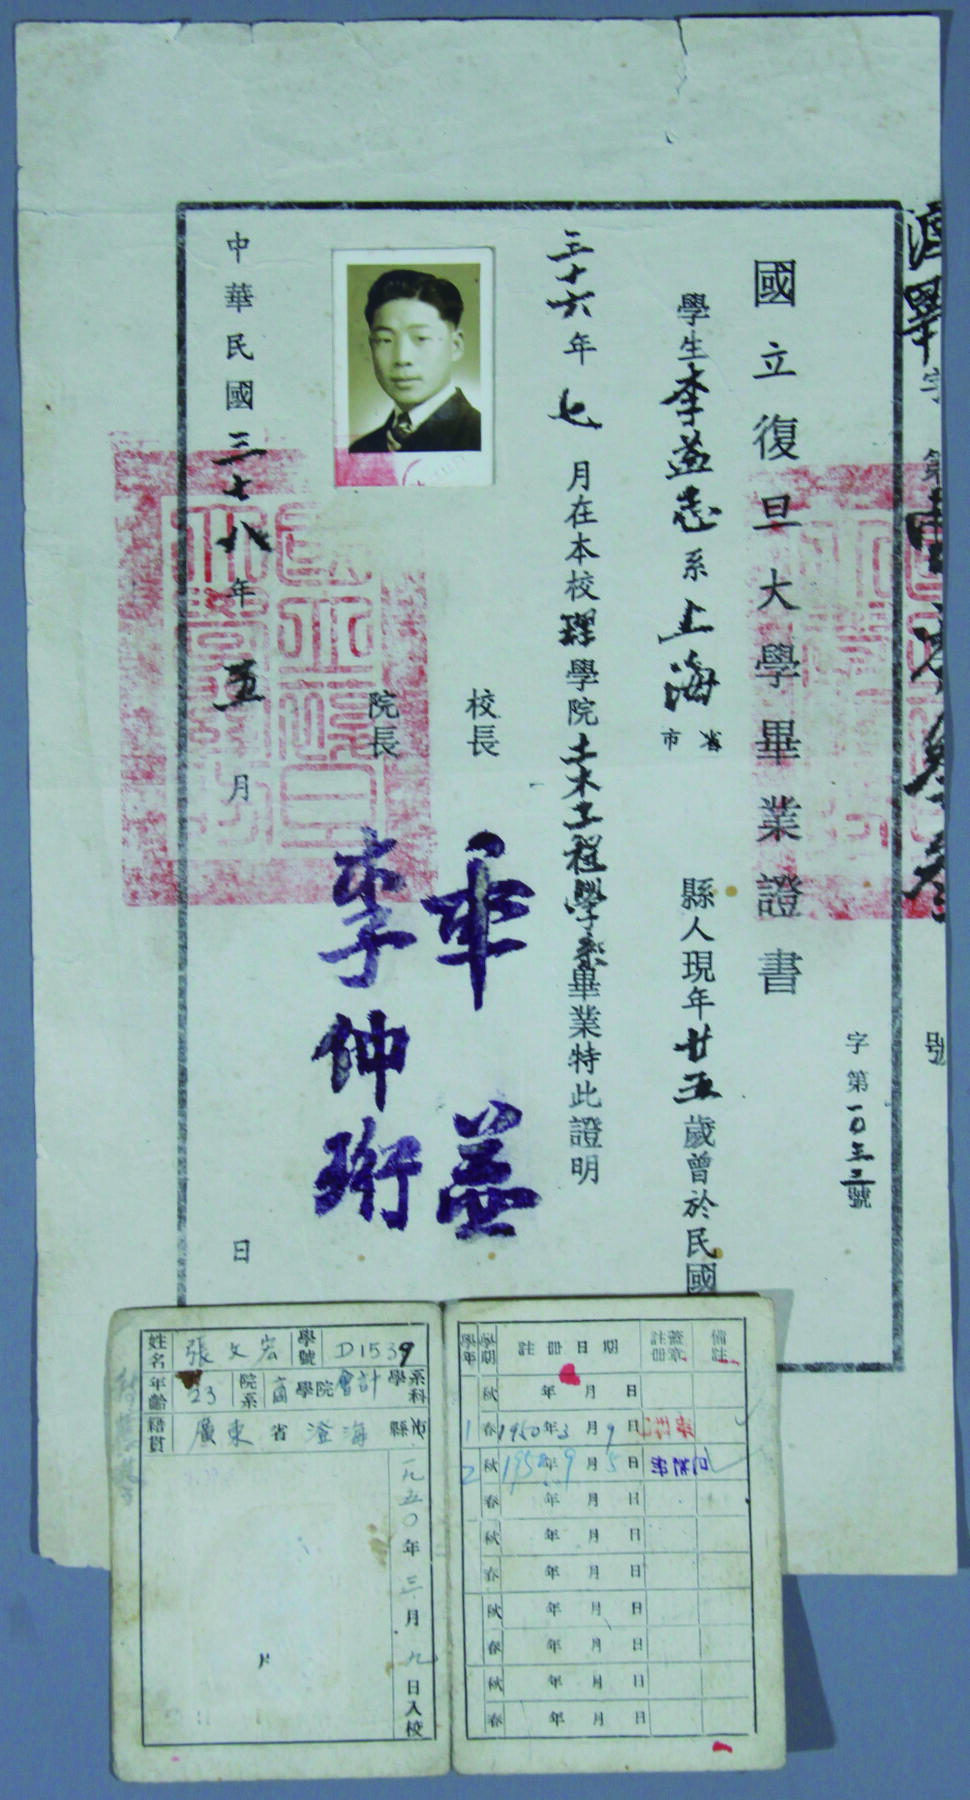 滬畢字第
號
字第一〇三三號
國立復旦大學畢業證書
學生李益志系上海省市
縣人現年廿五歲曾於民國
三十六年七月在本校理學院土木工程學系畢業特此證明
校長
章益
院長
李仲珩
中華民國三十八年五月 日
姓名 張文宏 學號 D1539
年齡 23 院系 商學院會計學系科
籍貫 廣東省澄海縣市
一九五〇年三月九日入校
學年 學期 註冊日期 註冊蓋章 備註
秋 年 月 日
1 春 1950年3月9日
2 秋 1950年9月5日
春 年 月 日
秋 年 月 日
春 年 月 日
秋 年 月 日
春 年 月 日
秋 年 月 日
春 年 月 日